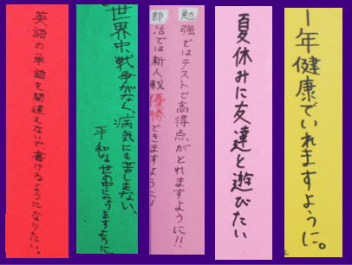 1年健康でいれますように。
夏休みに友達と遊びたい
勉強ではテストで高得点がとれますように!!
部活では新人戦優勝できますように!
世界中、戦争がなく、病気にも苦しまない、
平和な世の中になりますように
英語の単語を間違えないで書けるようになりたい。